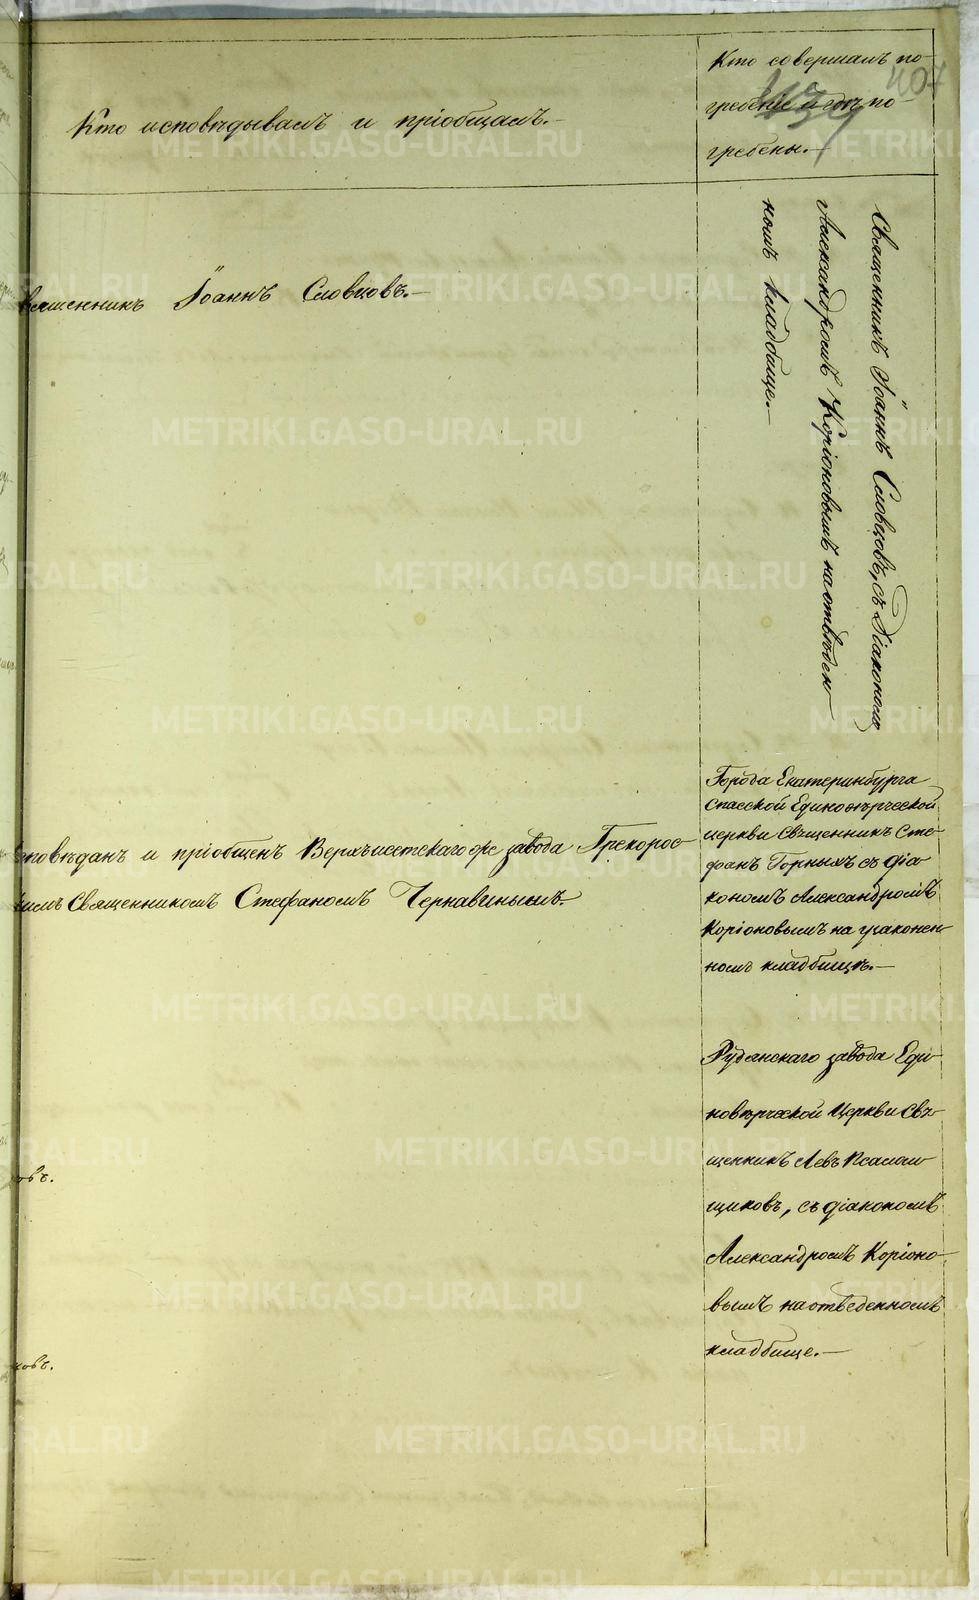 Кто исповѣдывалъ и пріобщалъ.
Кто совершалъ по-
гребеніе и гдѣ по-
гребены.
407
Священникъ Іоаннъ Словцовъ.
Священникъ Іоаннъ Словцовъ, съ Діакономъ
Александромъ Коріоновымъ на отведен-
номъ кладбище.
исповѣданъ и пріобщенъ Верхъисетскаго же завода Грекорос-
Священникомъ Стефаномъ Чернавинымъ.
Города Екатеринбурга
Спасской Единовѣрческой
церкви Священникъ Сте-
фанъ Горныхъ съ діа-
кономъ Александромъ
Коріоновымъ на узаконен-
номъ кладбищѣ.
Рудянскаго завода Еди-
новѣрческой Церкви Свя-
щенникъ Левъ Псалом-
щиковъ, съ діакономъ
Александромъ Коріоно-
вымъ на отведенномъ
кладбище.
овъ.
ковъ.
METRIKI.GASO-URAL.RU